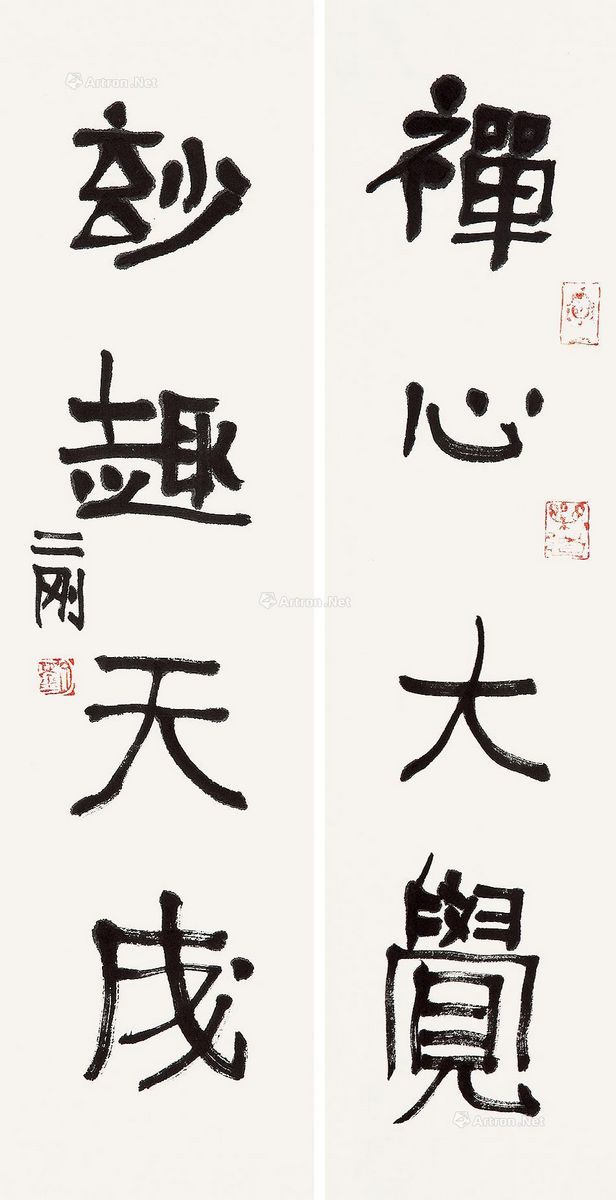 禪心大覺
玅趣天成
二刚
Artron.Net
Artron.Net
Artron.Net